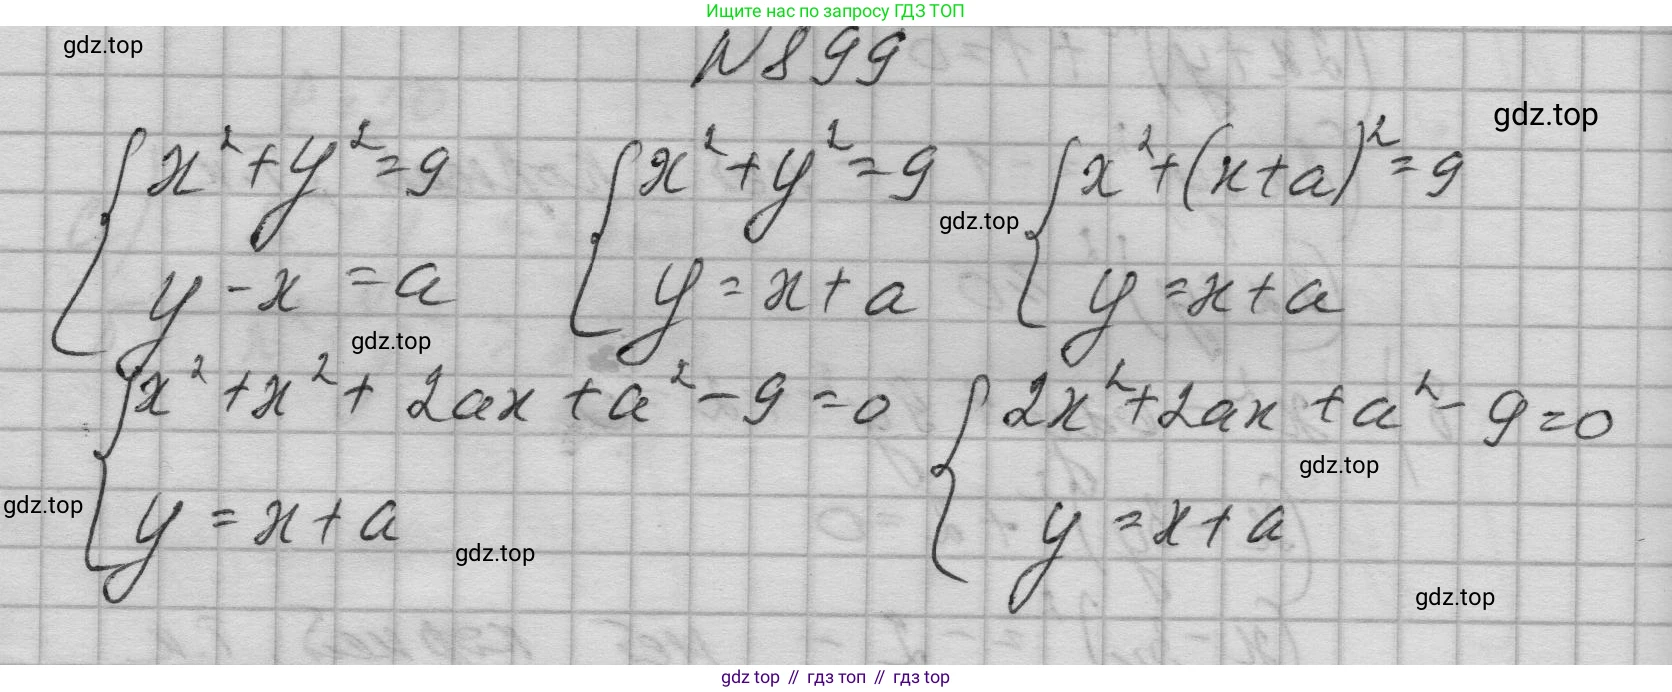 Ищите нас по запросу ГДЗ ТОП
gdz.top
N 899
gdz.top
x²+y²=9 x²+y²=9 x²+(x+a)²=9
gdz.top
y-x=a y=x+a y=x+a
gdz.top
x²+x²+2ax+a²-9=0 2x²+2ax+a²-9=0
gdz.top
gdz.top
y=x+a y=x+a
gdz.top
gdz.top
gdz top // гдз топ // гдз top